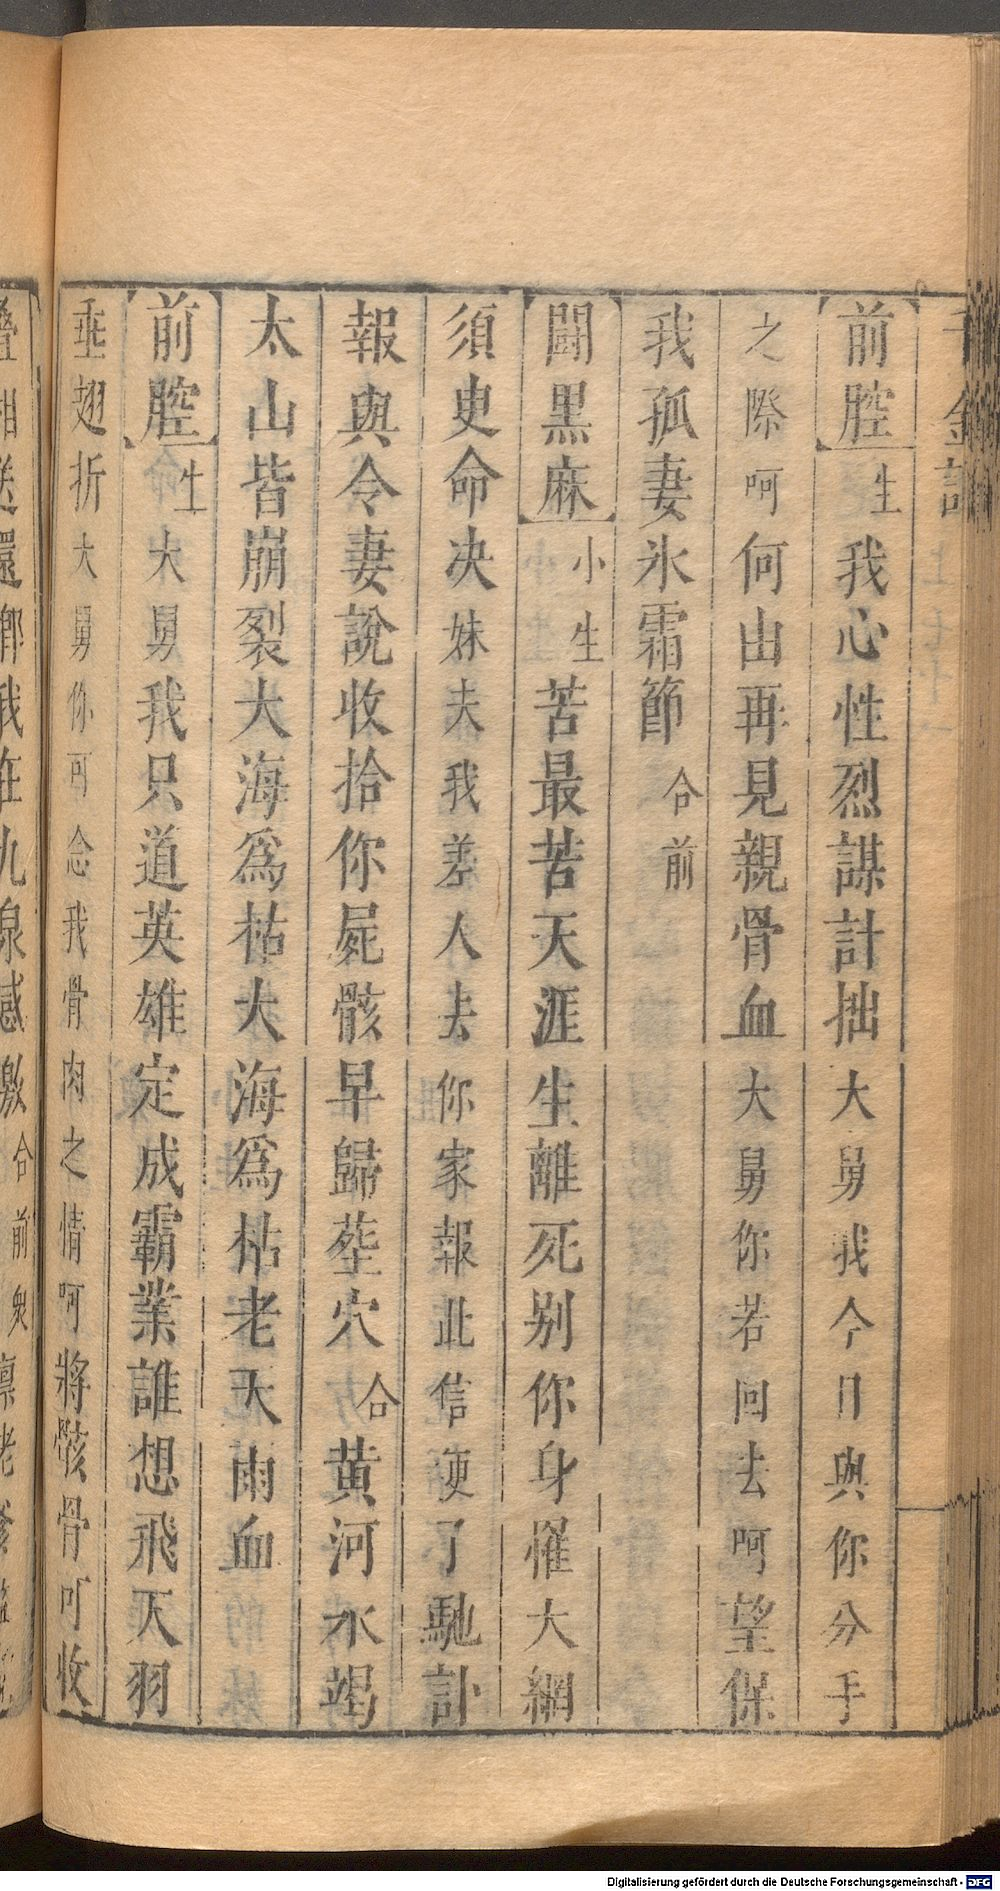 千金記
前腔生我心性烈謀計拙大舅我今日與你分手
之際呵何由再見親骨血大舅你若回去呵望保
我孤妻氷霜節合前
鬪黒麻小生苦最苦天涯生離死别你身罹大網
須臾命决妹夫我差人去你家報此信便了馳訃
報與令妻說收拾你屍骸早歸塟穴合黄河水竭
太山皆崩裂大海爲枯大海爲枯老天雨血
前腔生大舅我只道英雄定成霸業誰想飛天羽
垂翅折大舅你可念我骨肉之情呵將骸骨可收
疊相送還鄉我在九泉感激合前
Digitalisierung gefördert durch die Deutsche Forschungsgemeinschaft - DFG